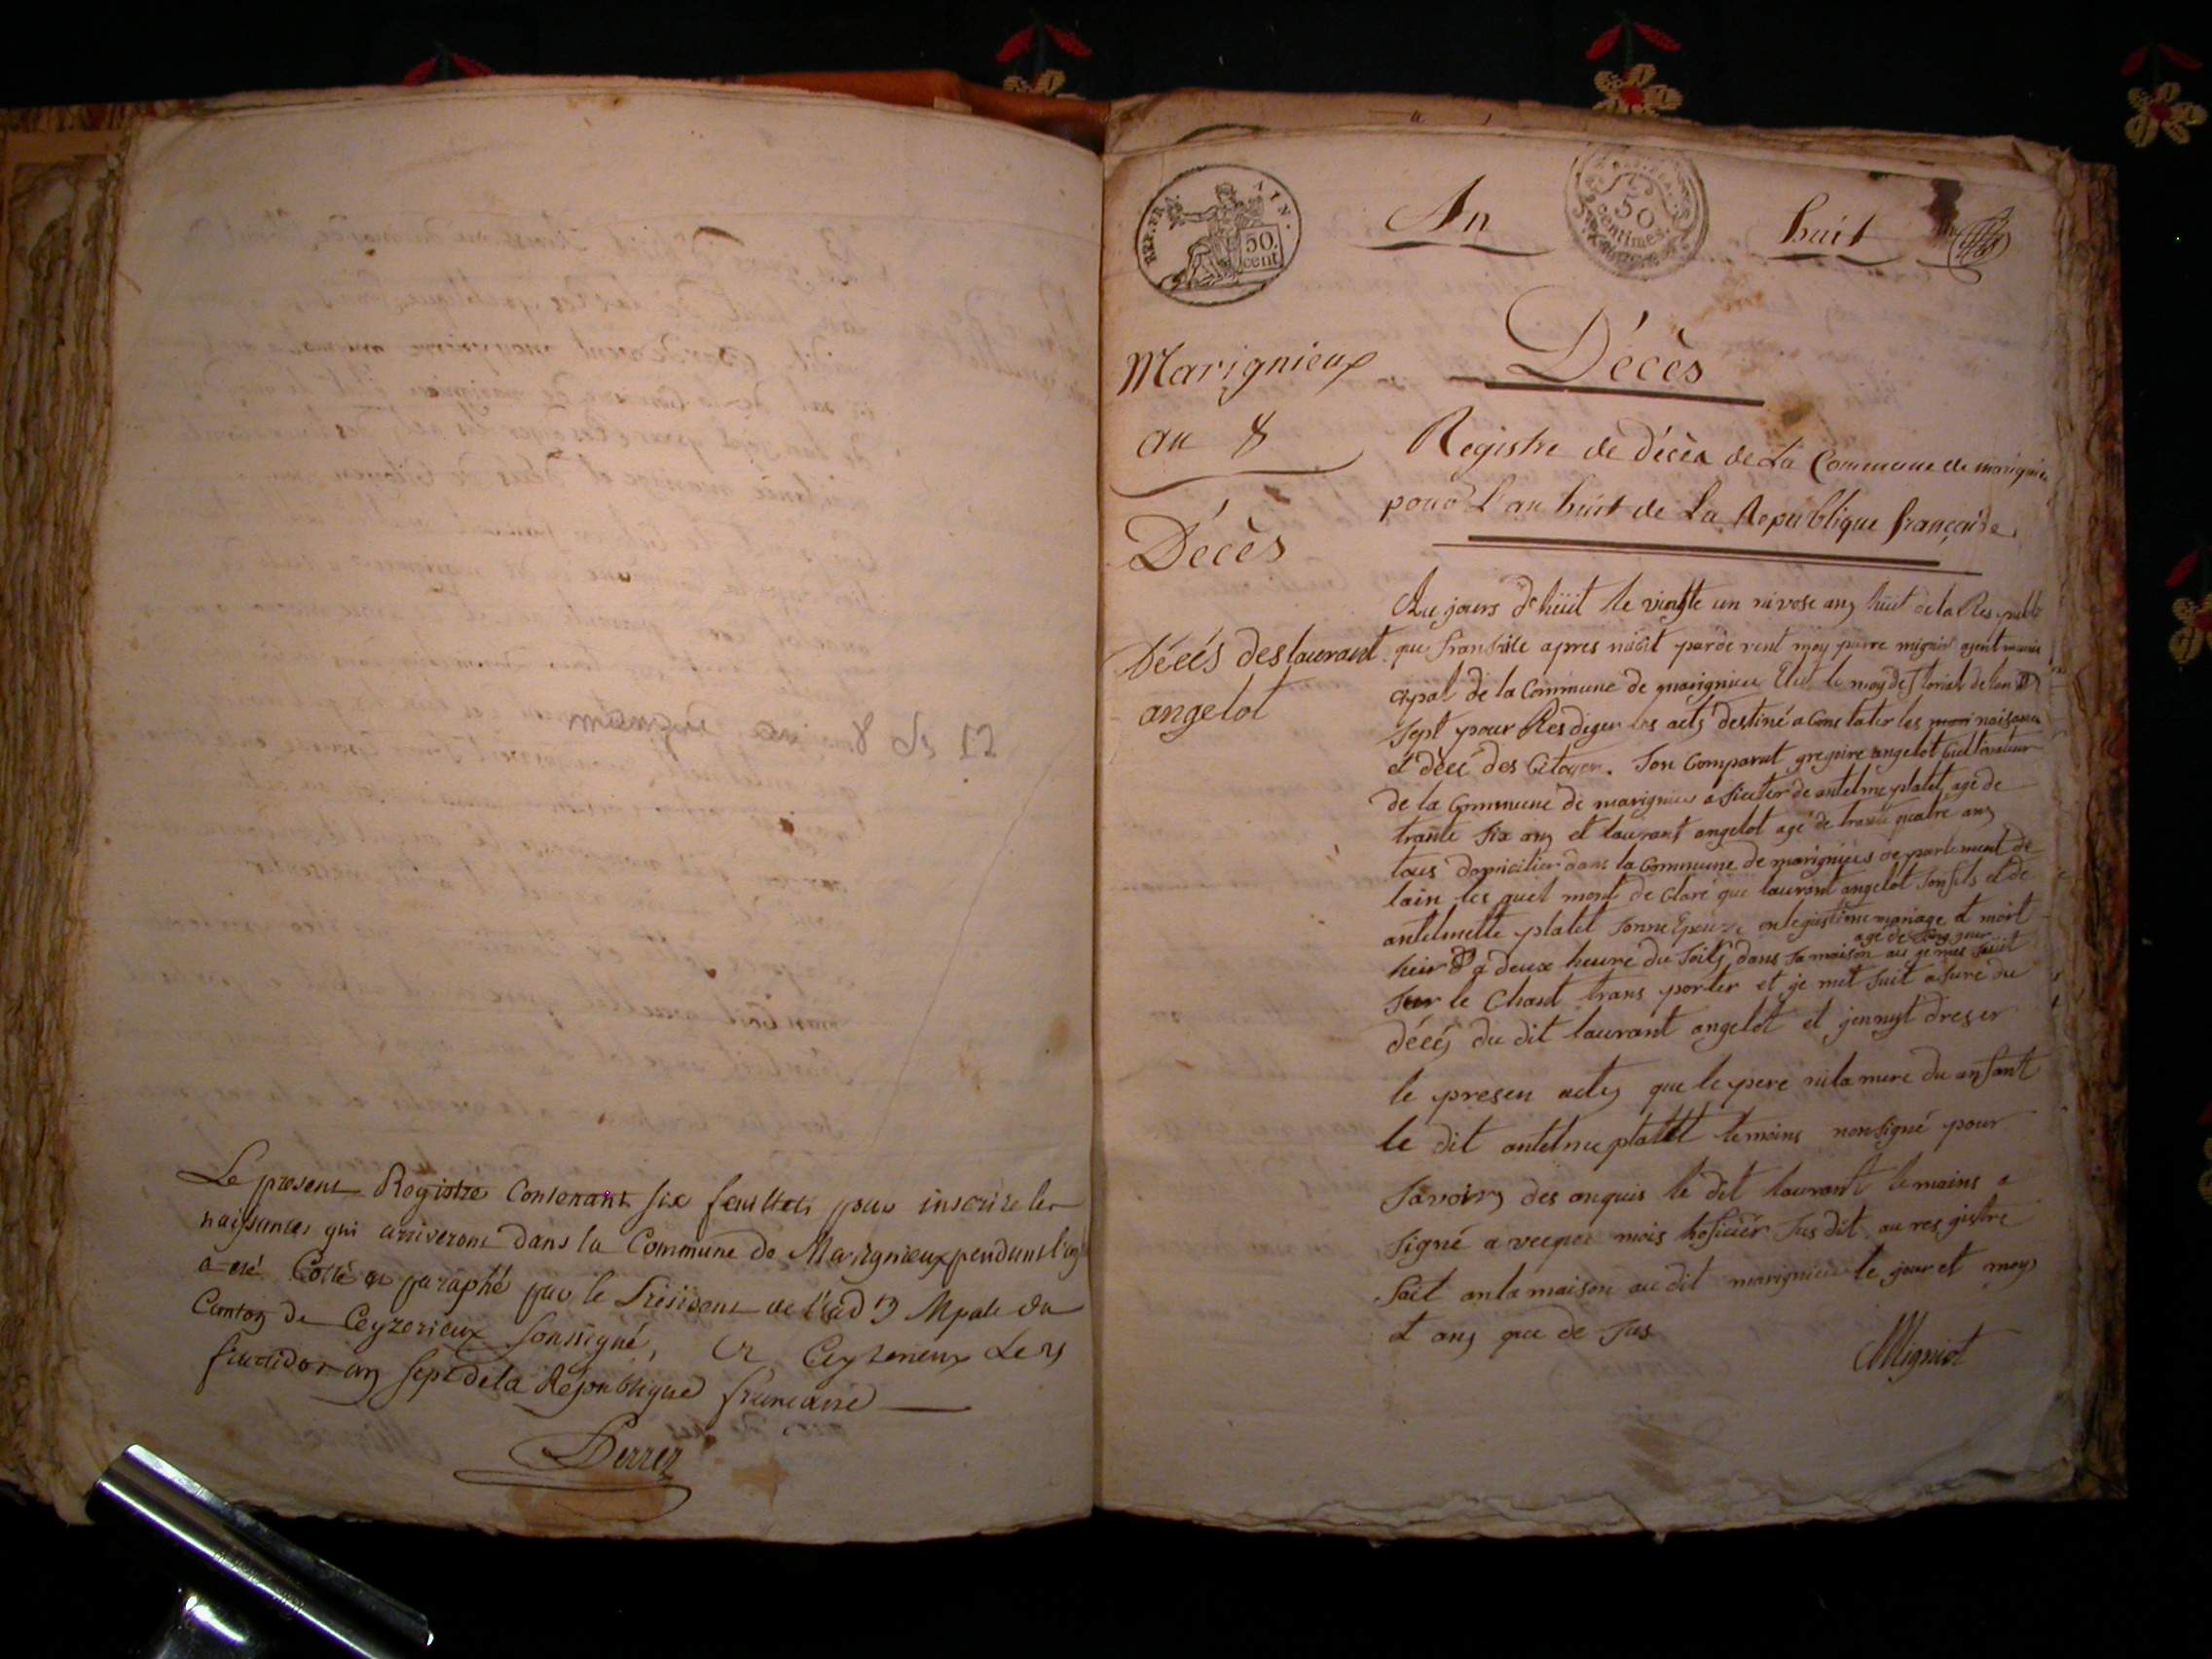 marignieu an 8 à 12
Le present Registre Contenant six feuillets pour inscrire les
naissances qui arriveront dans la Commune de Marignieux pendant l'an
a été Cotté et paraphé par le Président de l'ad on Mpale du
Canton de Ceyzerieux soussigné, a Ceyzerieux Le
fructidor an sept de la République francaise
Perrer
REP. FRA. AIN.
50. cent
An
50 centimes.
huit
Marignieux
an 8
Décès
Décès
Registre de Décès de La Commune de marignieu
pour L'an huit de La Republique française
Décés deslaurant
angelot
Au jours d'huit le vingte un nivose ans huit de la Respubli
que fransaise apres midit parde vent moy pierre migniot agent muni
cypal de la Commune de marignieu Elu le moy de florial de lan
sept pour Resdiger les acts destiné a Constater les naisance
et décé des Citoyen. Son Comparut gregoire angelot Cultivateur
de la Commune de marignieu asister de antelme platet age de
trante six ans et laurant angelot age de trante quatre ans
tous domicilier dans la Commune de marignieu departement de
lain les quel mont de Claré que laurant angelot son fils et de
antelmette platet sonne Epouze en legustime mariage et mort
hier a deux heure du soits dans sa maison au je mes suit
age de jour
sur le Chant trans porter et je met suit asure du
décés du dit laurant angelot et jennyt dreser
le presen acts que le pere ni la mere du anfant
le dit antelme platet temoins non signé pour
savoirs des anquis le dit laurant temoins a
signé a vecque mois hoficier sus dit au resgistre
fait anla maison au dit marignieu le jour et moys
et ans que de sus
Migniot